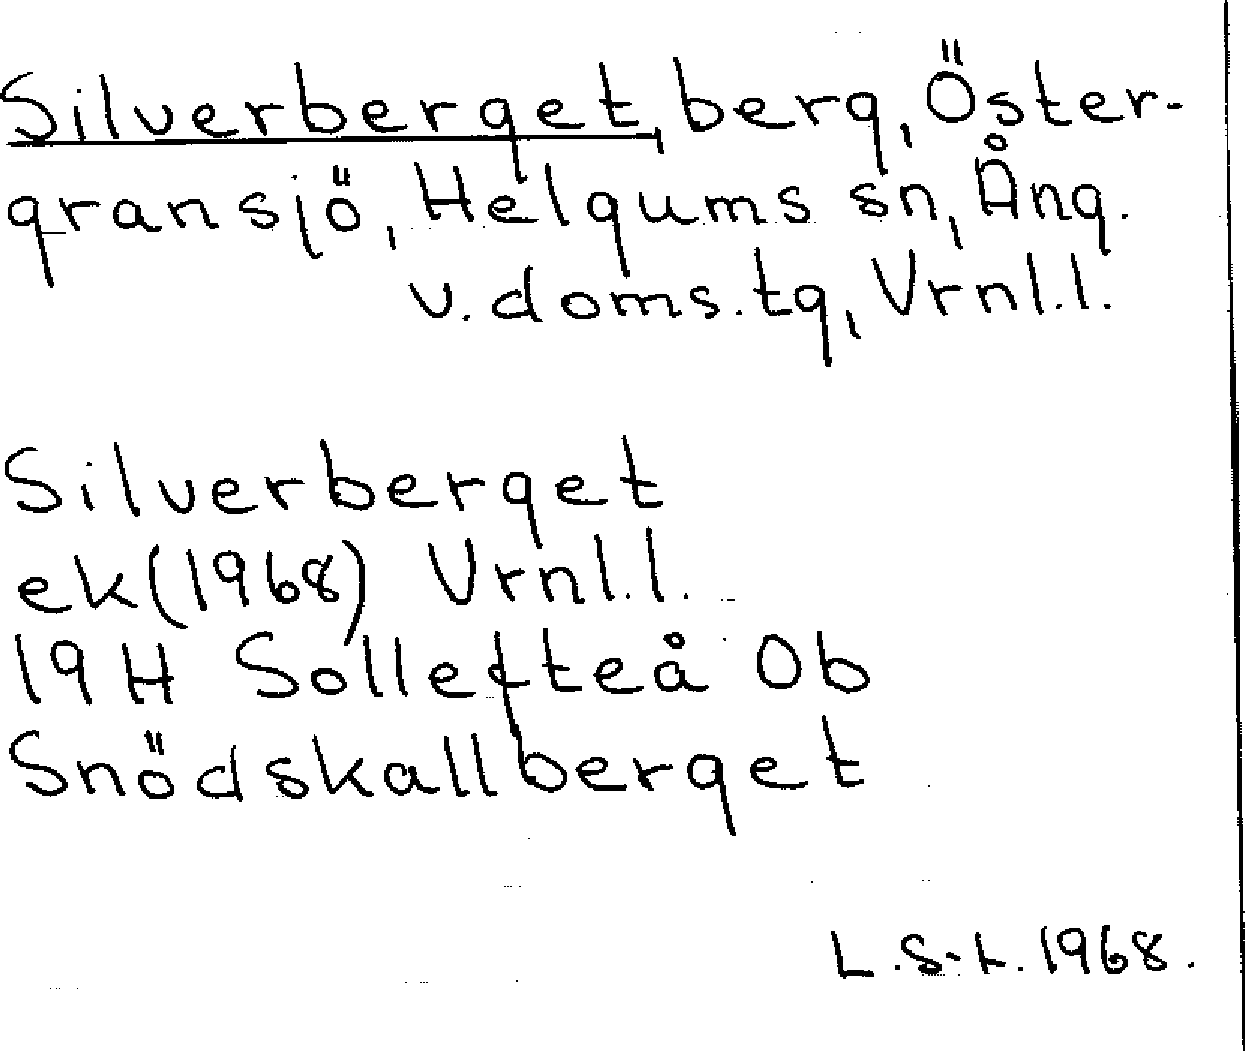 Silverberget, berg, Öster-
gransjö, Helgums sn, Ång.
v. doms. tg, Vrnl.l.
Silverberget
ek(1968) Vrnl.l.
19H Sollefteå Ob
Snödskallberget
L.S-t. 1968.